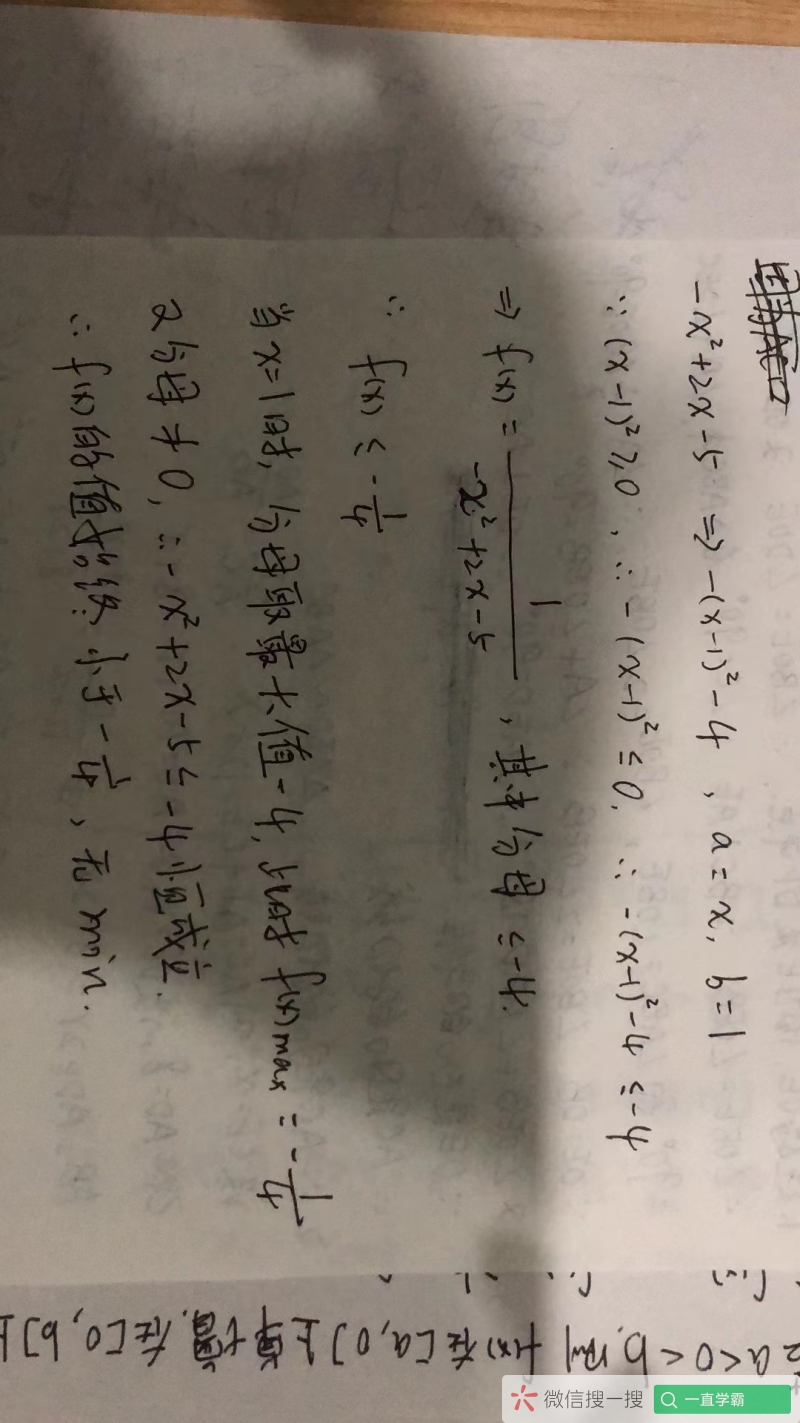 -x²+2x-5 ⇒ -(x-1)²-4, a=x, b=1
∵ (x-1)²≥0, ∴ -(x-1)²≤0. ∴ -(x-1)²-4≤-4
⇒ f(x) = 1/(-x²+2x-5), 其中分母≤-4.
∴ f(x) ≤ -1/4
当x=1时, 分母取最大值-4, 此时f(x)max = -1/4
又分母≠0, ∴ -x²+2x-5≤-4恒成立.
∴ f(x)的值始终小于-1/4, 无min.
a<0<b, 则f(x)在[a,0]上单增, 在[0,b]上
微信搜一搜
一直学霸